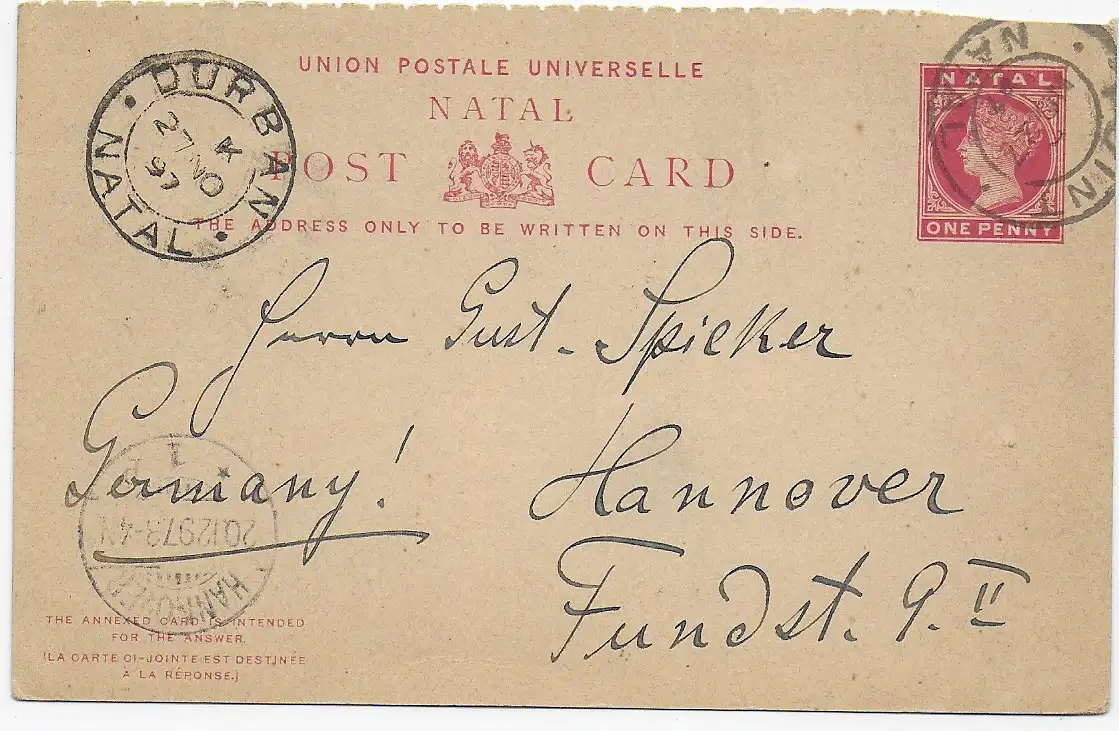 UNION POSTALE UNIVERSELLE
NATAL
POST CARD
THE ADDRESS ONLY TO BE WRITTEN ON THIS SIDE.
NATAL
ONE PENNY
DURBAN
K
27 NO
97
NATAL
Herrn Gust. Spieker
Germany!
Hannover
Fundst. 9. II
20.12.97.3-4N
HANNOVER
THE ANNEXED CARD IS INTENDED
FOR THE ANSWER.
(LA CARTE CI-JOINTE EST DESTINÉE
À LA RÉPONSE.)